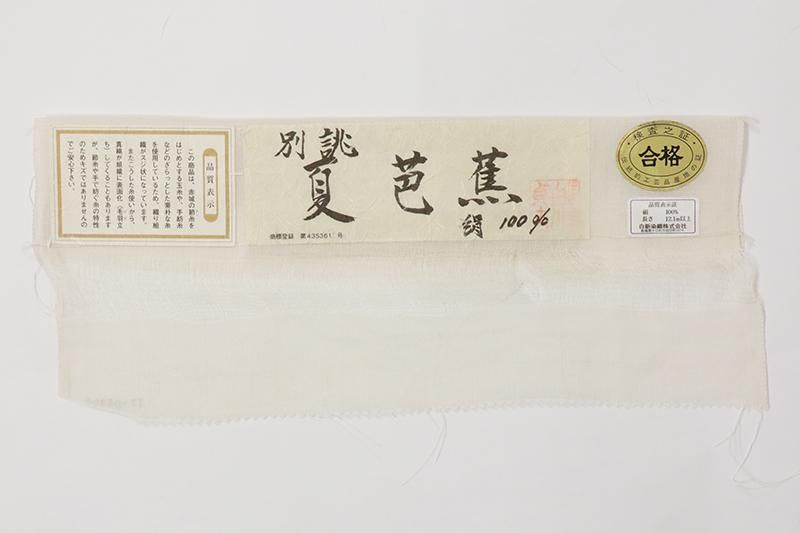 品質表示
この商品は、赤城の節糸を
はじめとする玉糸や、手紡糸
などのざらっとした素朴な糸
を使用しているため、織り組
織がスジ状になっています。
またこうした糸使いから、
真綿が組織に表面化（毛羽立
ち）してくることもあります
が、節糸や手で紡ぐ糸の特性
のためキズではありませんの
でご安心下さい。
別誂
夏芭蕉
絹 100%
商標登録 第435361号
検査之証
合格
伝統的工芸品産地の証
品質表示証
絹 100%
長さ 12.1m以上
白新染織株式会社